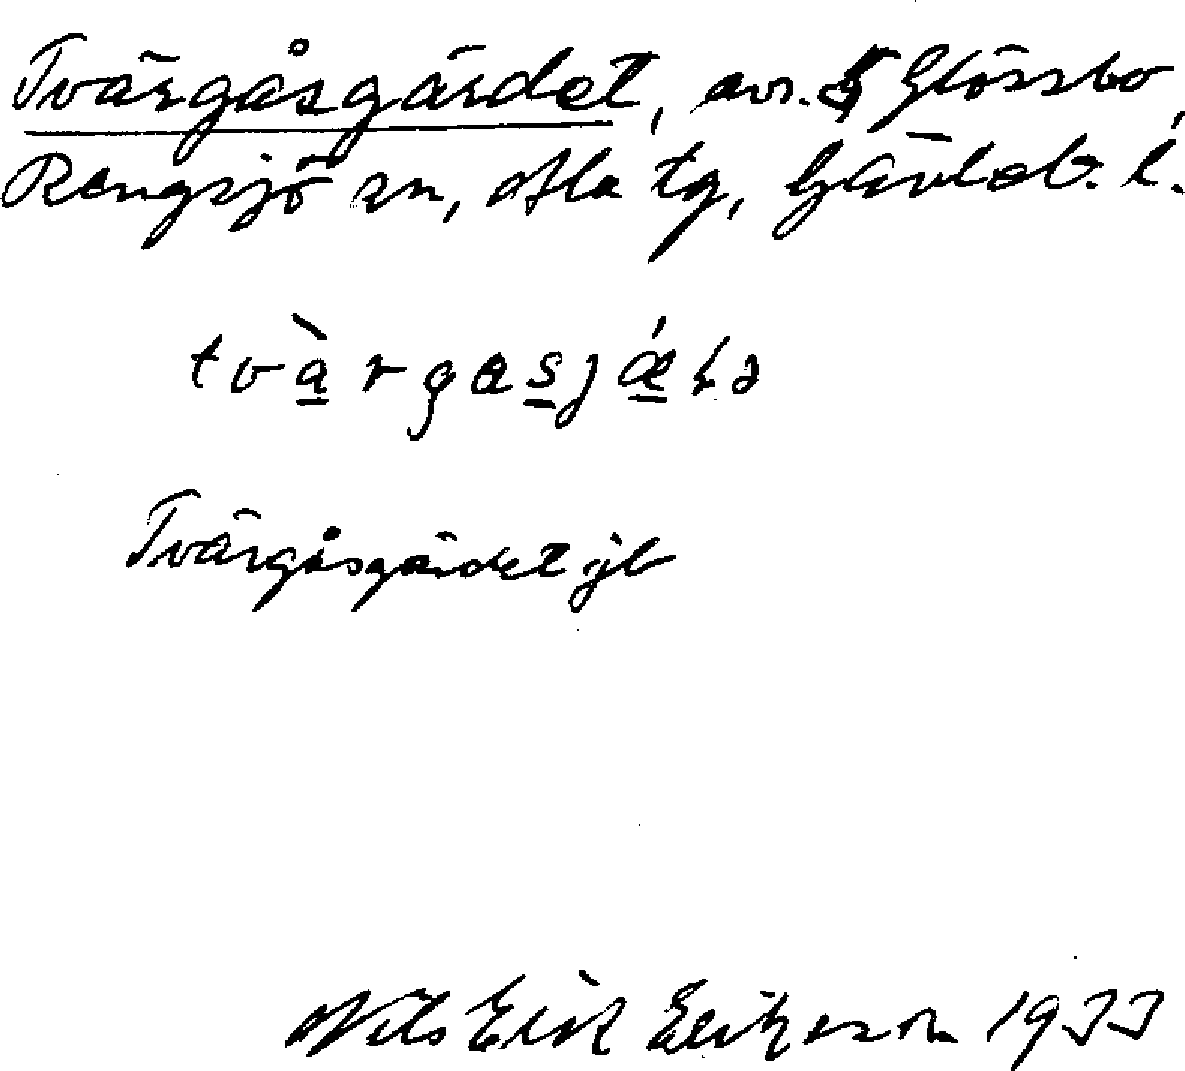 Tvärgåsgärdet, avs. Glössbo,
Rengsjö sn, Ala tg, Gävleb. l.
Tvärgåsgärdet jb
Nils Erik Eriksson 1933